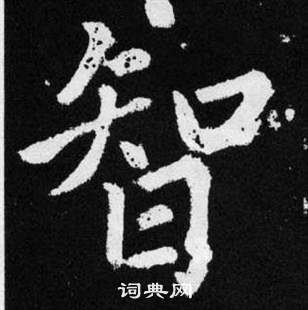 智
词典网